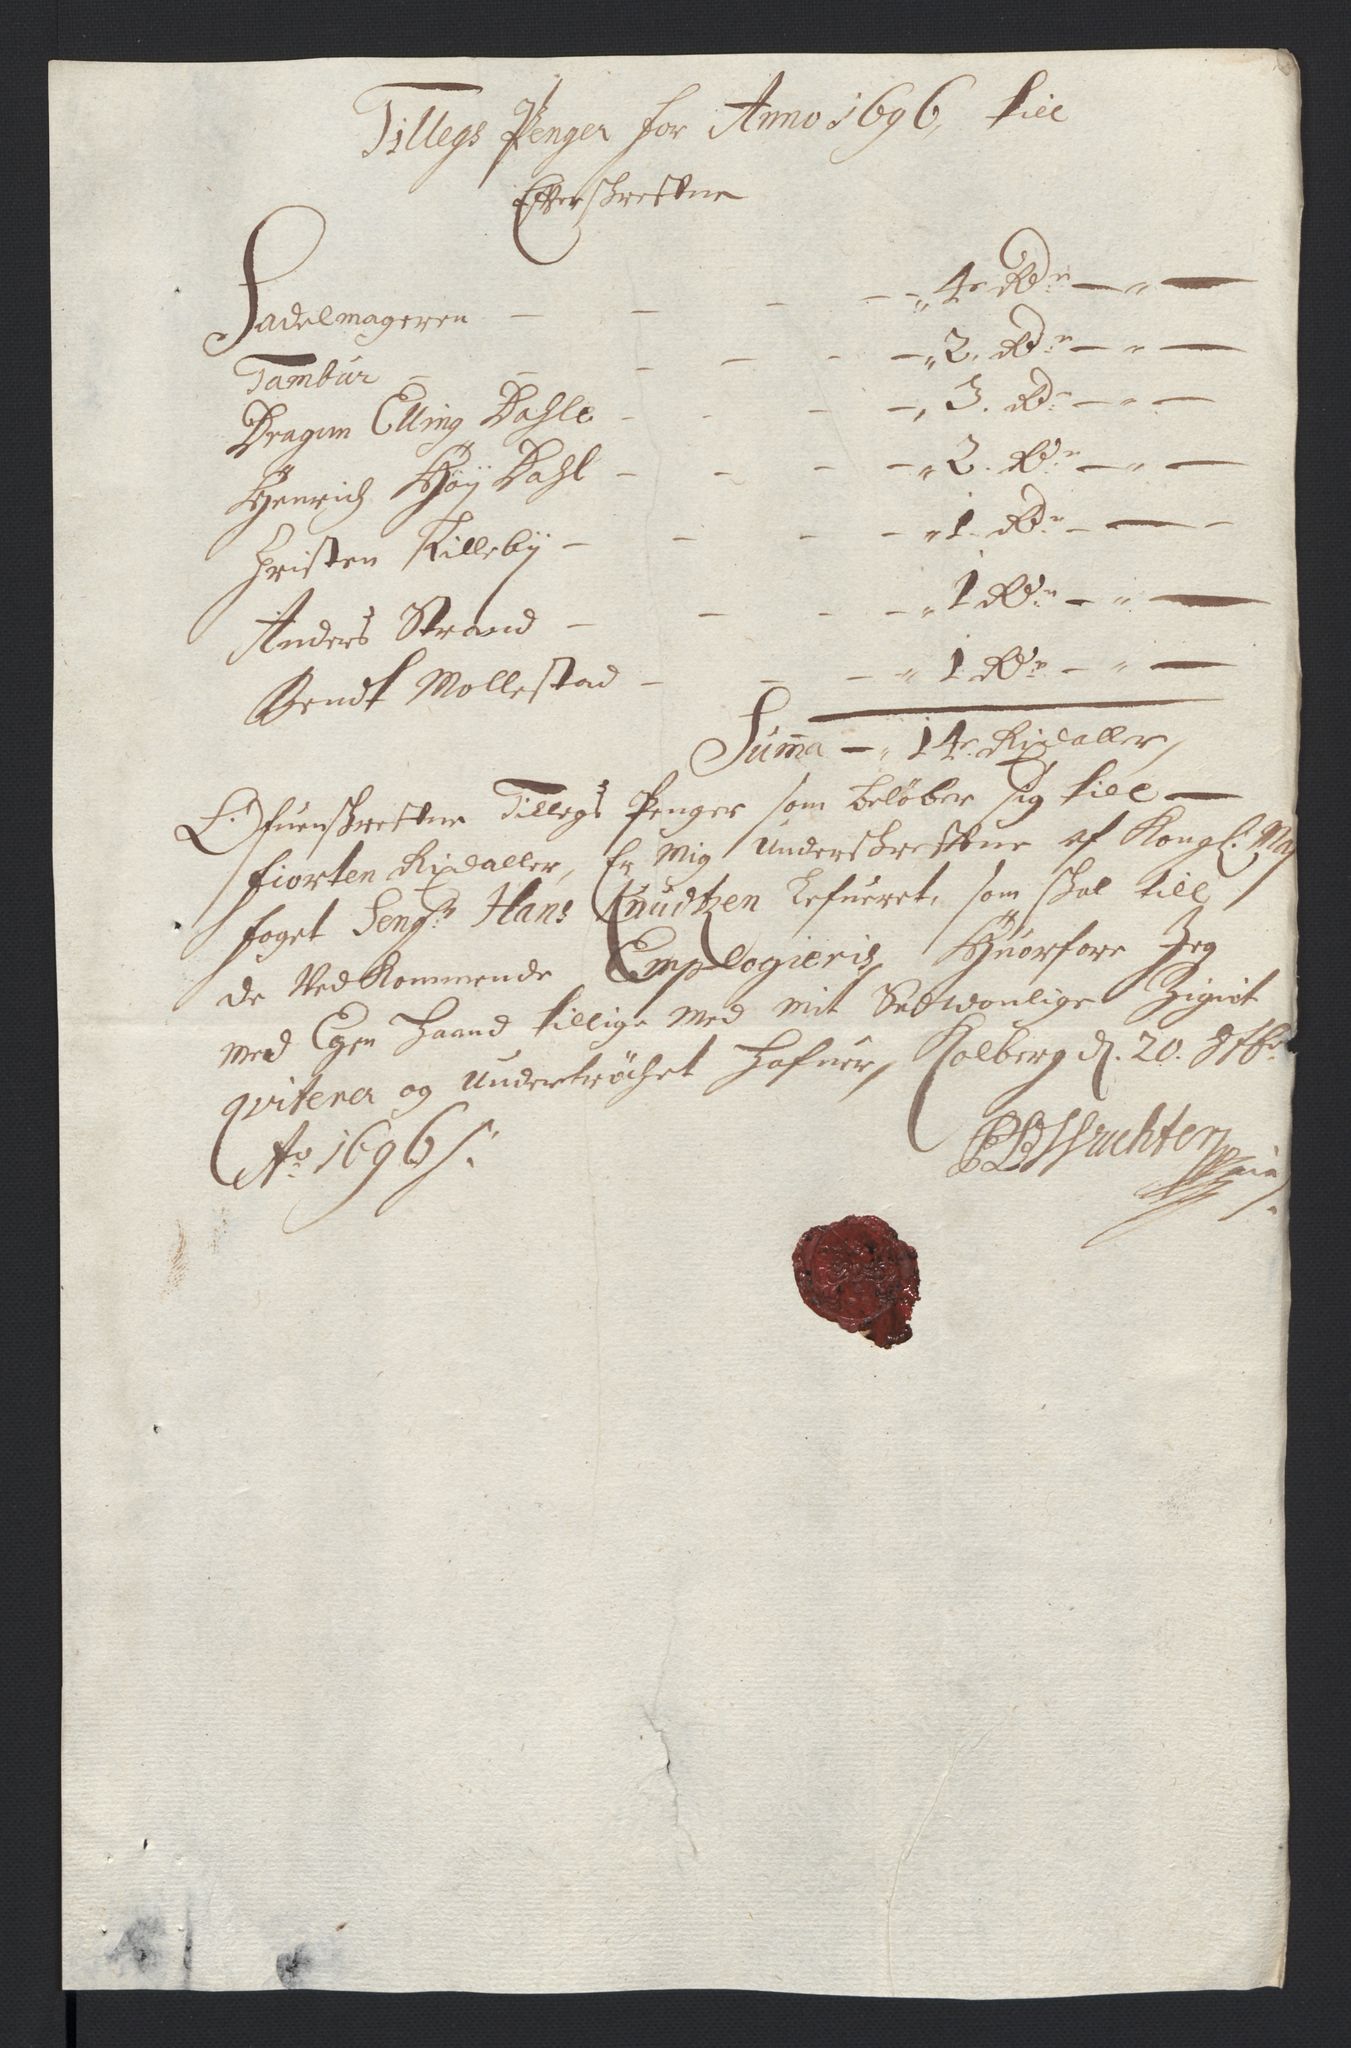 Tillegs Penger for Anno 1696, till
Efterschrefne
Sadelmageren - - - - - 4 Rdr - " -
Tambur - - - - - 2. Rdr - " -
Dragun Elling Dahle - - - - 3. Rdr - " -
Henrich Høÿ Dahl - - - - 2. Rdr - " -
Christen Killebÿ - - - - 1. Rdr - -
Anders Strand - - - - 1 Rdr - " -
Berndt Mollestad - - - 1 Rdr - " -
Summa - 14 Rixdaller,
Ofuenschrefne Tillegs Penger som beløber sig till
fiorten Rixdaller, Er Mig Underschrefne af Kongl. May
foget Sengr. Hans Knudtzen lefueret, som schal till
de Vedkommende Emplogieris, Huorfore Jeg
med Egen Haand tillige med mit Sedwonlige Zignet
qvitered og Undertrøchet hafuer, Kolberg d. 20. 8tbr
Ao 1696.